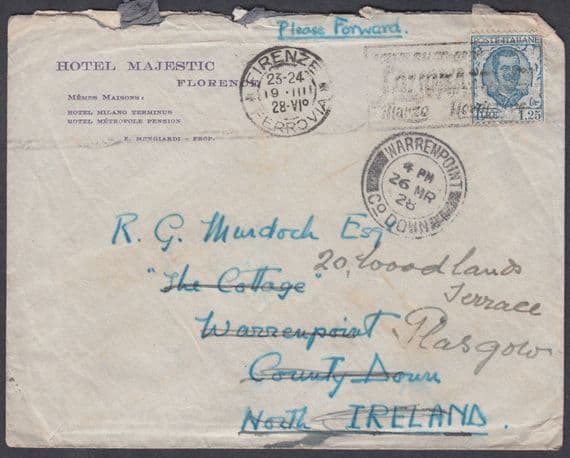 Please Forward.
HOTEL MAJESTIC
FLORENCE
MÊMES MAISONS:
HOTEL MILANO TERMINUS
HOTEL MÉTROPOLE PENSION
E. MENGIARDI - PROP.
FIRENZE
23-24
19 III
28-VIº
FERROVIA
POSTE ITALIANE
1.25
WARRENPOINT
4 PM
26 MR
28
Co DOWN
R. G. Murdoch Esq
"The Cottage"
20, Woodlands
Terrace
Warrenpoint
Glasgow
County Down
North IRELAND.